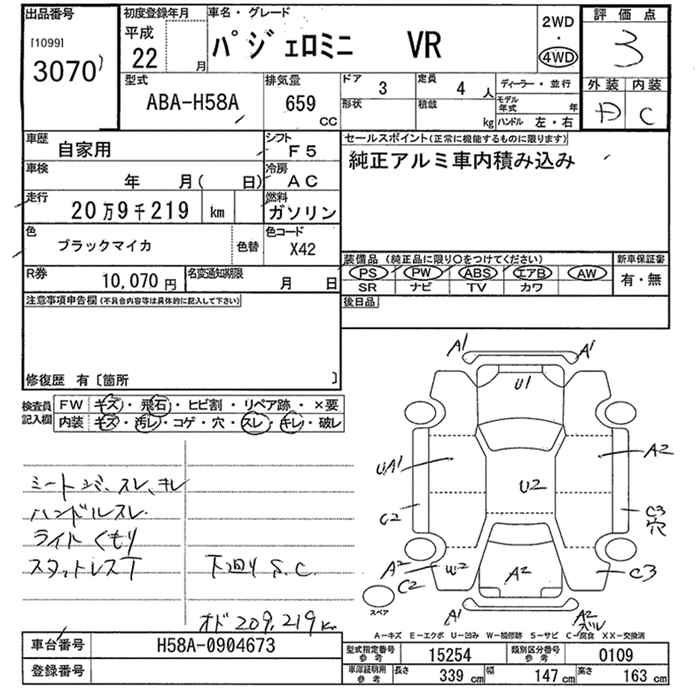 出品番号
[1099]
3070
初度登録年月
平成
22 月
車名・グレード
パジェロミニ VR
2WD
・
4WD
評価点
3
外装 内装
D C
型式
ABA-H58A
排気量
659 CC
ドア 3
形状
定員 4 人
積載 kg
ディーラー・並行
モデル年式 年
ハンドル 左・右
車歴
自家用
シフト
F5
セールスポイント(正常に機能するものに限ります)
純正アルミ車内積み込み
車検
年 月( 日)
冷房
AC
走行
20万9千219 km
燃料
ガソリン
色
ブラックマイカ
色替
色コード
X42
装備品 (純正品に限り○をつけてください)
PS PW ABS エアB AW
SR ナビ TV カワ
新車保証書
有・無
R券
10,070 円
名変通知期限
月 日
後日品
注意事項申告欄(不具合内容等は具体的に記入して下さい)
修復歴 有〔箇所 〕
検査員記入欄
FW キズ・飛石・ヒビ割・リペア跡・×要
内装 キズ・汚レ・コゲ・穴・スレ・キレ・破レ
ハンドルスレ
ライトくもり
スタットレスT
下回りS.C.
オド209,219km
A1 A1
U1
UA1
A2
U2
C2
C3
穴
A2
C2
W2
A2
C3
スペア
A1
A2
A-キズ E-エクボ U-凹み W-補修跡 S-サビ C-腐食 XX-交換済
車台番号
H58A-0904673
登録番号
型式指定番号 参考
15254
類別区分番号 参考
0109
車庫証明用 参考
長さ 339 cm
幅 147 cm
高さ 163 cm